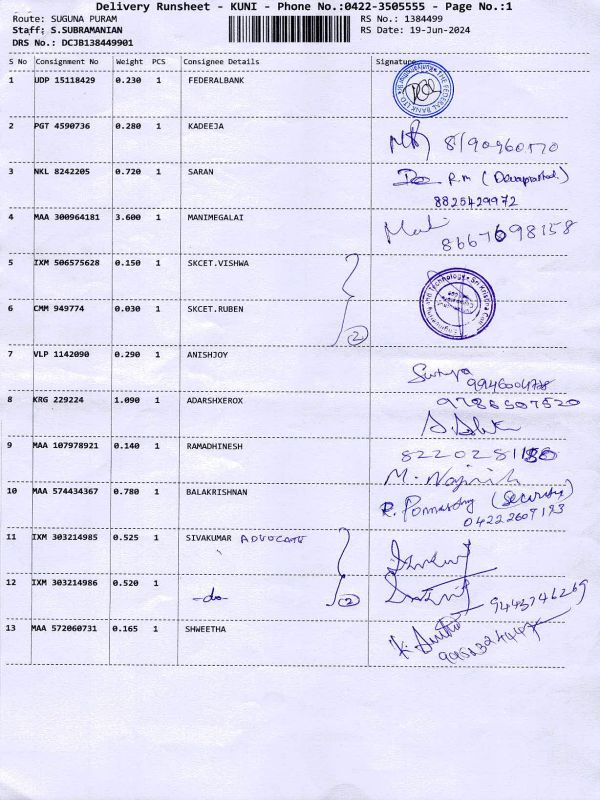 Delivery Runsheet - KUNI - Phone No.:0422-3505555 - Page No.:1
Route: SUGUNA PURAM
Staff: S.SUBRAMANIAN
DRS No.: DCJB138449901
RS No.: 1384499
RS Date: 19-Jun-2024
S No Consignment No Weight PCS Consignee Details Signature
1 UDP 15118429 0.230 1 FEDERALBANK
THE FEDERAL BANK LTD.
2 PGT 4590736 0.280 1 KADEEJA
3 NKL 8242205 0.720 1 SARAN R.M
8825429972
4 MAA 300964181 3.600 1 MANIMEGALAI
8667698158
5 IXM 506575628 0.150 1 SKCET.VISHWA
6 CMM 949774 0.030 1 SKCET.RUBEN 2
7 VLP 1142090 0.290 1 ANISHJOY
8 KRG 229224 1.090 1 ADARSHXEROX
9 MAA 107978921 0.140 1 RAMADHINESH
10 MAA 574434367 0.780 1 BALAKRISHNAN (Security)
04222609193
11 IXM 303214985 0.525 1 SIVAKUMAR ADVOCATE
12 IXM 303214986 0.520 1 -do- 2
13 MAA 572060731 0.165 1 SHWEETHA